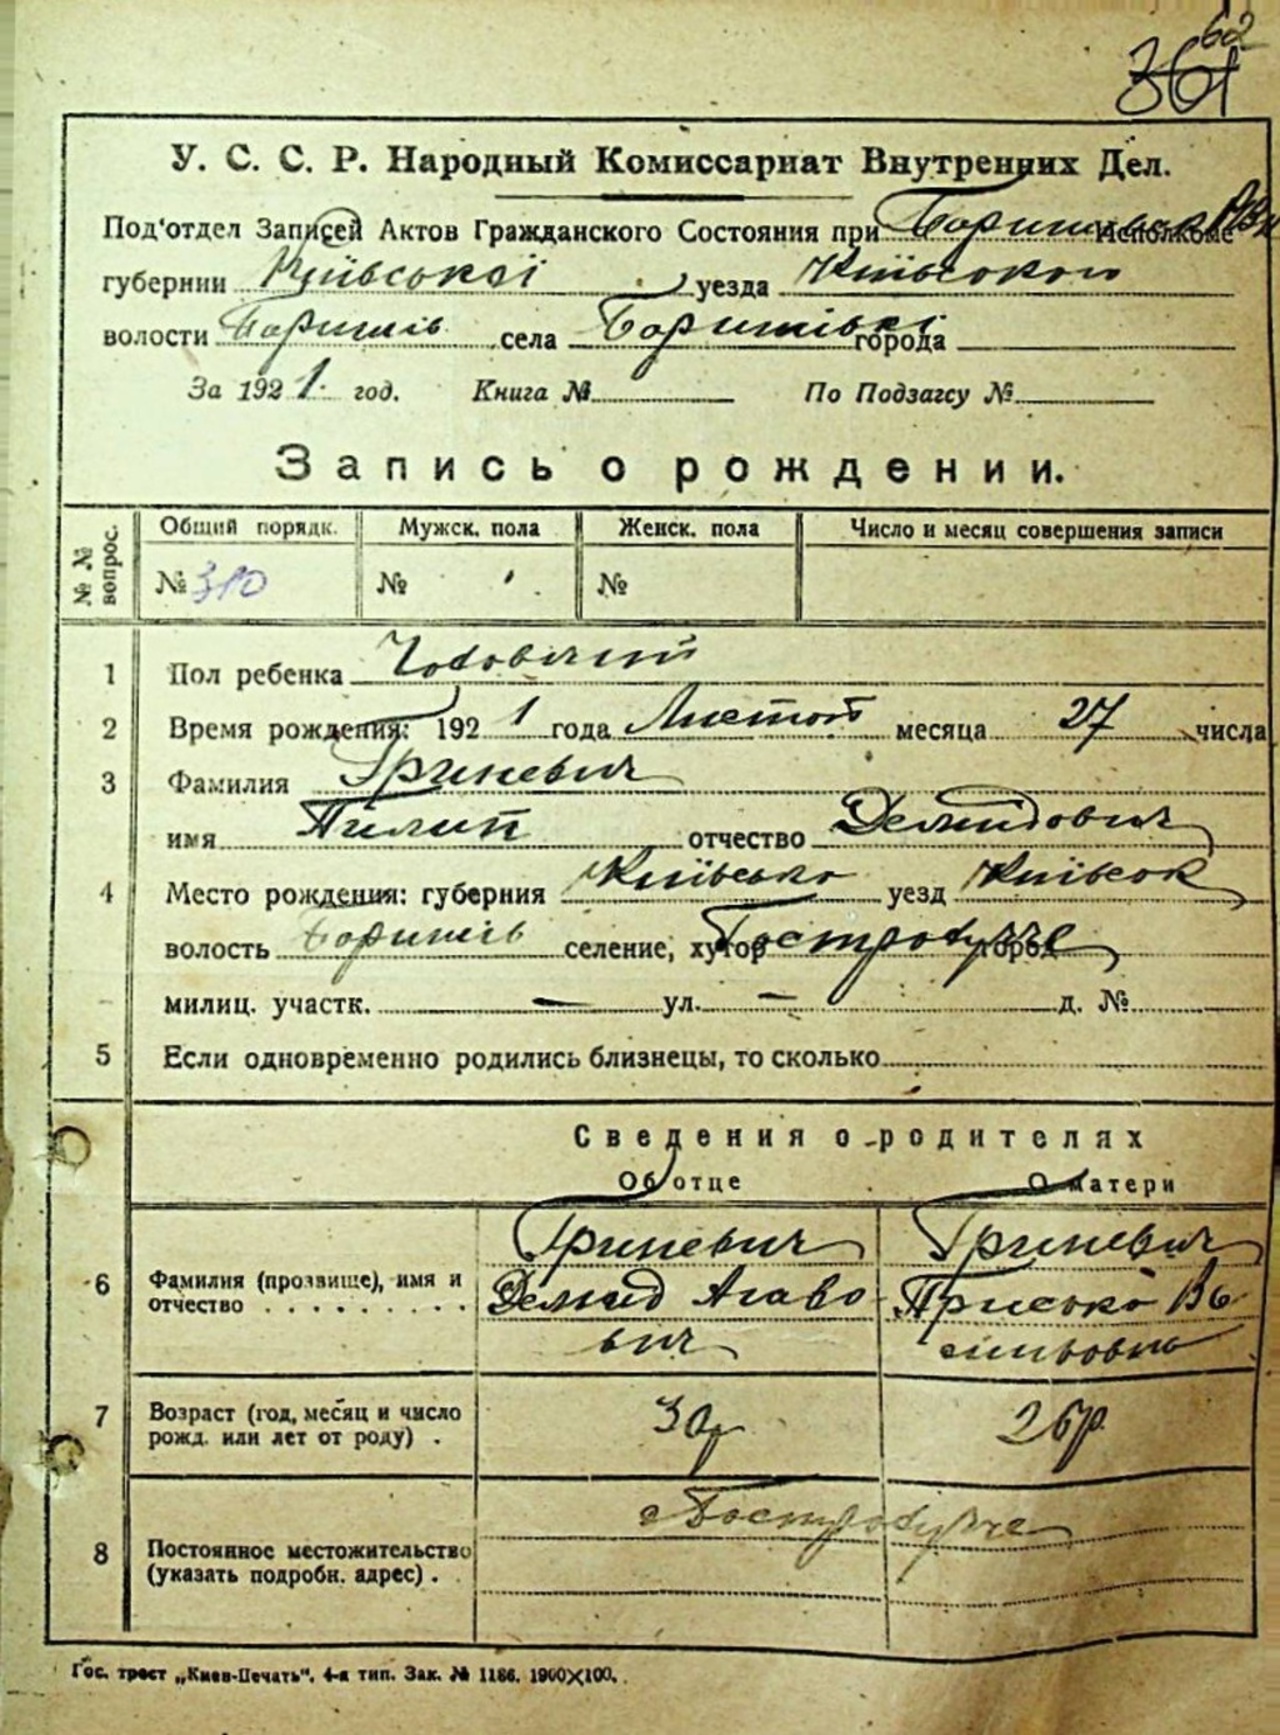 62
361
У. С. С. Р. Народный Комиссариат Внутренних Дел.
Под'отдел Записей Актов Гражданского Состояния при Исполкоме
губернии Київської уезда Київського
волости Боришпів села города
За 1921. год. Книга № По Подзагсу №
Запись о рождении.
№ № вопрос. Общий порядк. Мужск. пола Женск. пола Число и месяц совершения записи
№ 310 № №
1 Пол ребенка Чоловічий
2 Время рождения: 1921 года Листоп месяца 27 числа
3 Фамилия Гриневич
имя Пилип отчество Демидович
4 Место рождения: губерния уезд Київськ
волость селение, хутор город
милиц. участк. — ул. — д. №
5 Если одновременно родились близнецы, то сколько
Сведения о родителях
Об отце О матери
6 Фамилия (прозвище), имя и отчество Гриневич Гриневич
Демид
вич
7 Возраст (год, месяц и число рожд. или лет от роду) . 30р 26р.
8 Постоянное местожительство (указать подробн. адрес) .
Гос. трест „Киев-Печать". 4-я тип. Зак. № 1186. 1900X100.